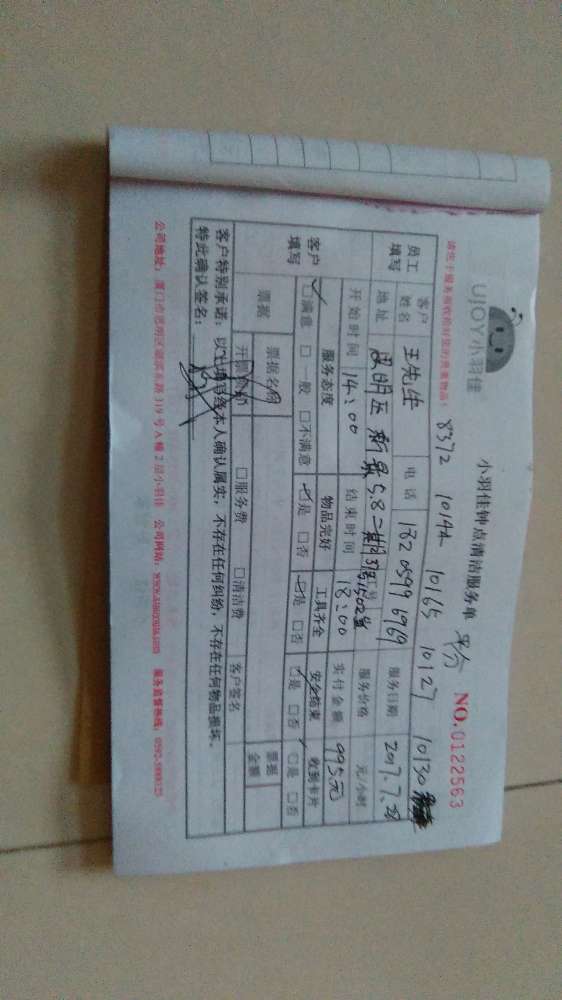 UJOY小羽佳
小羽佳钟点清洁服务单
NO.0122563
请您于服务前收拾好您的贵重物品!
8372 1014A 10165 10127 10130
员工填写 客户姓名 王先生 电话 182 0599 6969 服务日期 2017.7.28
地址 思明区 二期37号1502室 服务价格 元/小时
开始时间 14:00 结束时间 18:00 实付金额 995元
客户填写 服务态度 物品完好 工具齐全 安全结束 收到卡片
□满意 □一般 □不满意 □是 □否 □是 □否 □是 □否 □是 □否
票据 票据名称 客户签名 票据金额
开票单价 □服务费 □清洁费
客户特别承诺:以上填写经本人确认属实,不存在任何纠纷,不存在任何物品损坏。
特此确认签名:
公司地址:厦门市思明区湖滨东路319号A幢2层小羽佳 公司网站:www.xiaoyujia.com 服务监督热线:0592-5909123